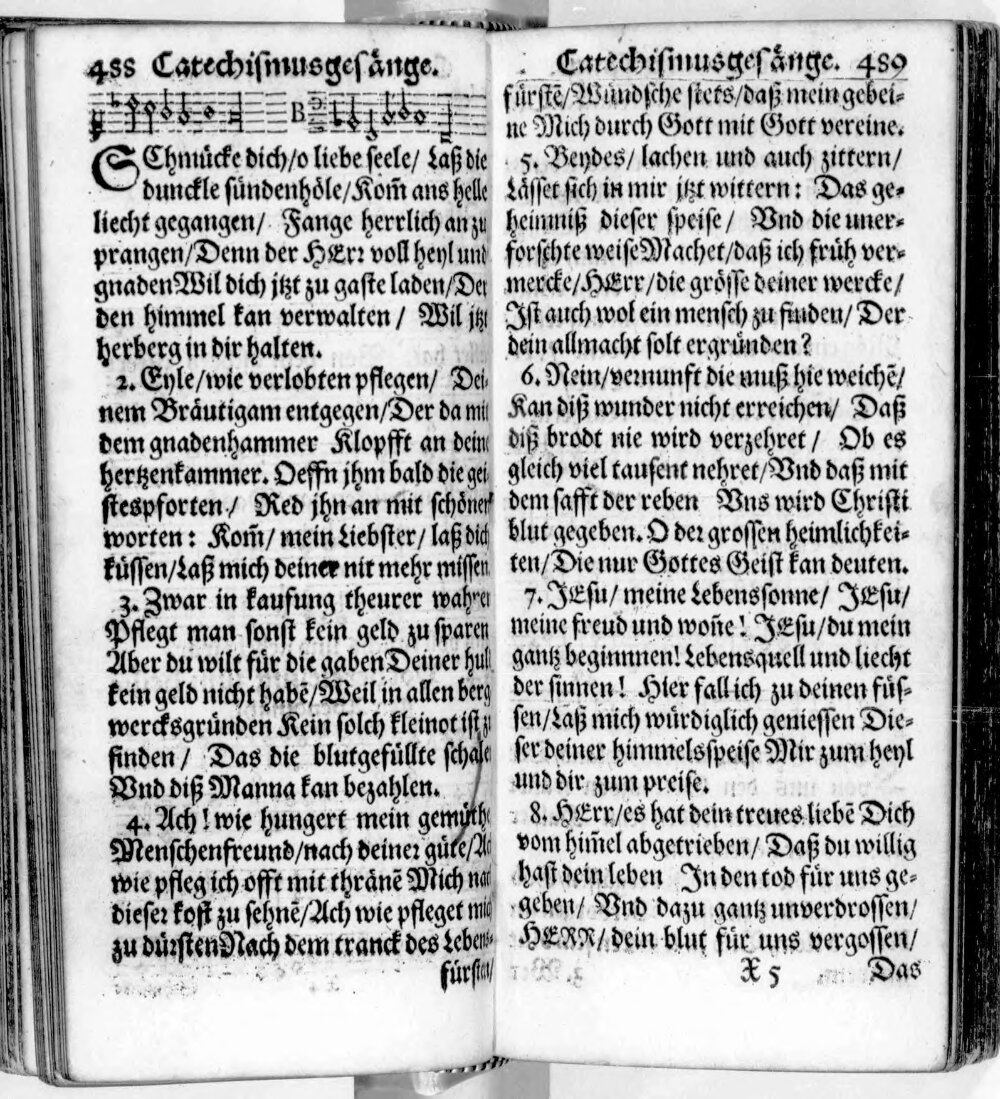 488 Catechismusgesänge.
B
SChmücke dich/o liebe seele/ Laß die
dunckle sündenhöle/Kom̃ ans helle
liecht gegangen/ Fange herrlich an zu
prangen/Denn der HErr voll heyl und
gnaden Wil dich jtzt zu gaste laden/Der
den himmel kan verwalten / Wil jtzt
herberg in dir halten.
2. Eyle/wie verlobten pflegen/ Dei-
nem Bräutigam entgegen/Der da mit
dem gnadenhammer Klopfft an deine
hertzenkammer. Oeffn jhm bald die gei-
stespforten/ Red jhn an mit schönen
worten: Kom̃/ mein Liebster/ laß dich
küssen/Laß mich deiner nit mehr missen
3. Zwar in kaufung theurer wahren
Pflegt man sonst kein geld zu sparen
Aber du wilt für die gaben Deiner huld
kein geld nicht habẽ/Weil in allen berg
wercksgründen Kein solch kleinot ist zu
finden/ Das die blutgefüllte schalen
Vnd diß Manna kan bezahlen.
4. Ach! wie hungert mein gemüthe
Menschenfreund/nach deiner güte/Ach
wie pfleg ich offt mit thränẽ Mich nach
dieser kost zu sehnẽ/Ach wie pfleget mich
zu dürsten Nach dem tranck des Lebens-
fürsten/
Catechismusgesänge. 489
fürstẽ/Wündsche stets/daß mein gebei-
ne Mich durch Gott mit Gott vereine.
5. Beydes/ lachen und auch zittern/
Lässet sich in mir jtzt wittern: Das ge-
heimniß dieser speise/ Vnd die uner-
forschte weise Machet/daß ich früh ver-
mercke/HErr/die grösse deiner wercke/
Ist auch wol ein mensch zu finden/ Der
dein allmacht solt ergründen?
6. Nein/vernunft die muß hie weichẽ/
Kan diß wunder nicht erreichen/ Daß
diß brodt nie wird verzehret / Ob es
gleich viel tausent nehret/Vnd daß mit
dem safft der reben Vns wird Christi
blut gegeben. O der grossen heimlichkei-
ten/Die nur Gottes Geist kan deuten.
7. JEsu/ meine Lebenssonne/ JEsu/
meine freud und woñe! JEsu/du mein
gantz beginnnen! Lebensquell und liecht
der sinnen! Hier fall ich zu deinen füs-
sen/Laß mich würdiglich geniessen Die-
ser deiner himmelsspeise Mir zum heyl
und dir zum preise.
8. HErr/es hat dein treues liebẽ Dich
vom him̃el abgetrieben/ Daß du willig
hast dein leben In den tod für uns ge-
geben/ Vnd dazu gantz unverdrossen/
HERR/ dein blut für uns vergossen/
X 5 Das